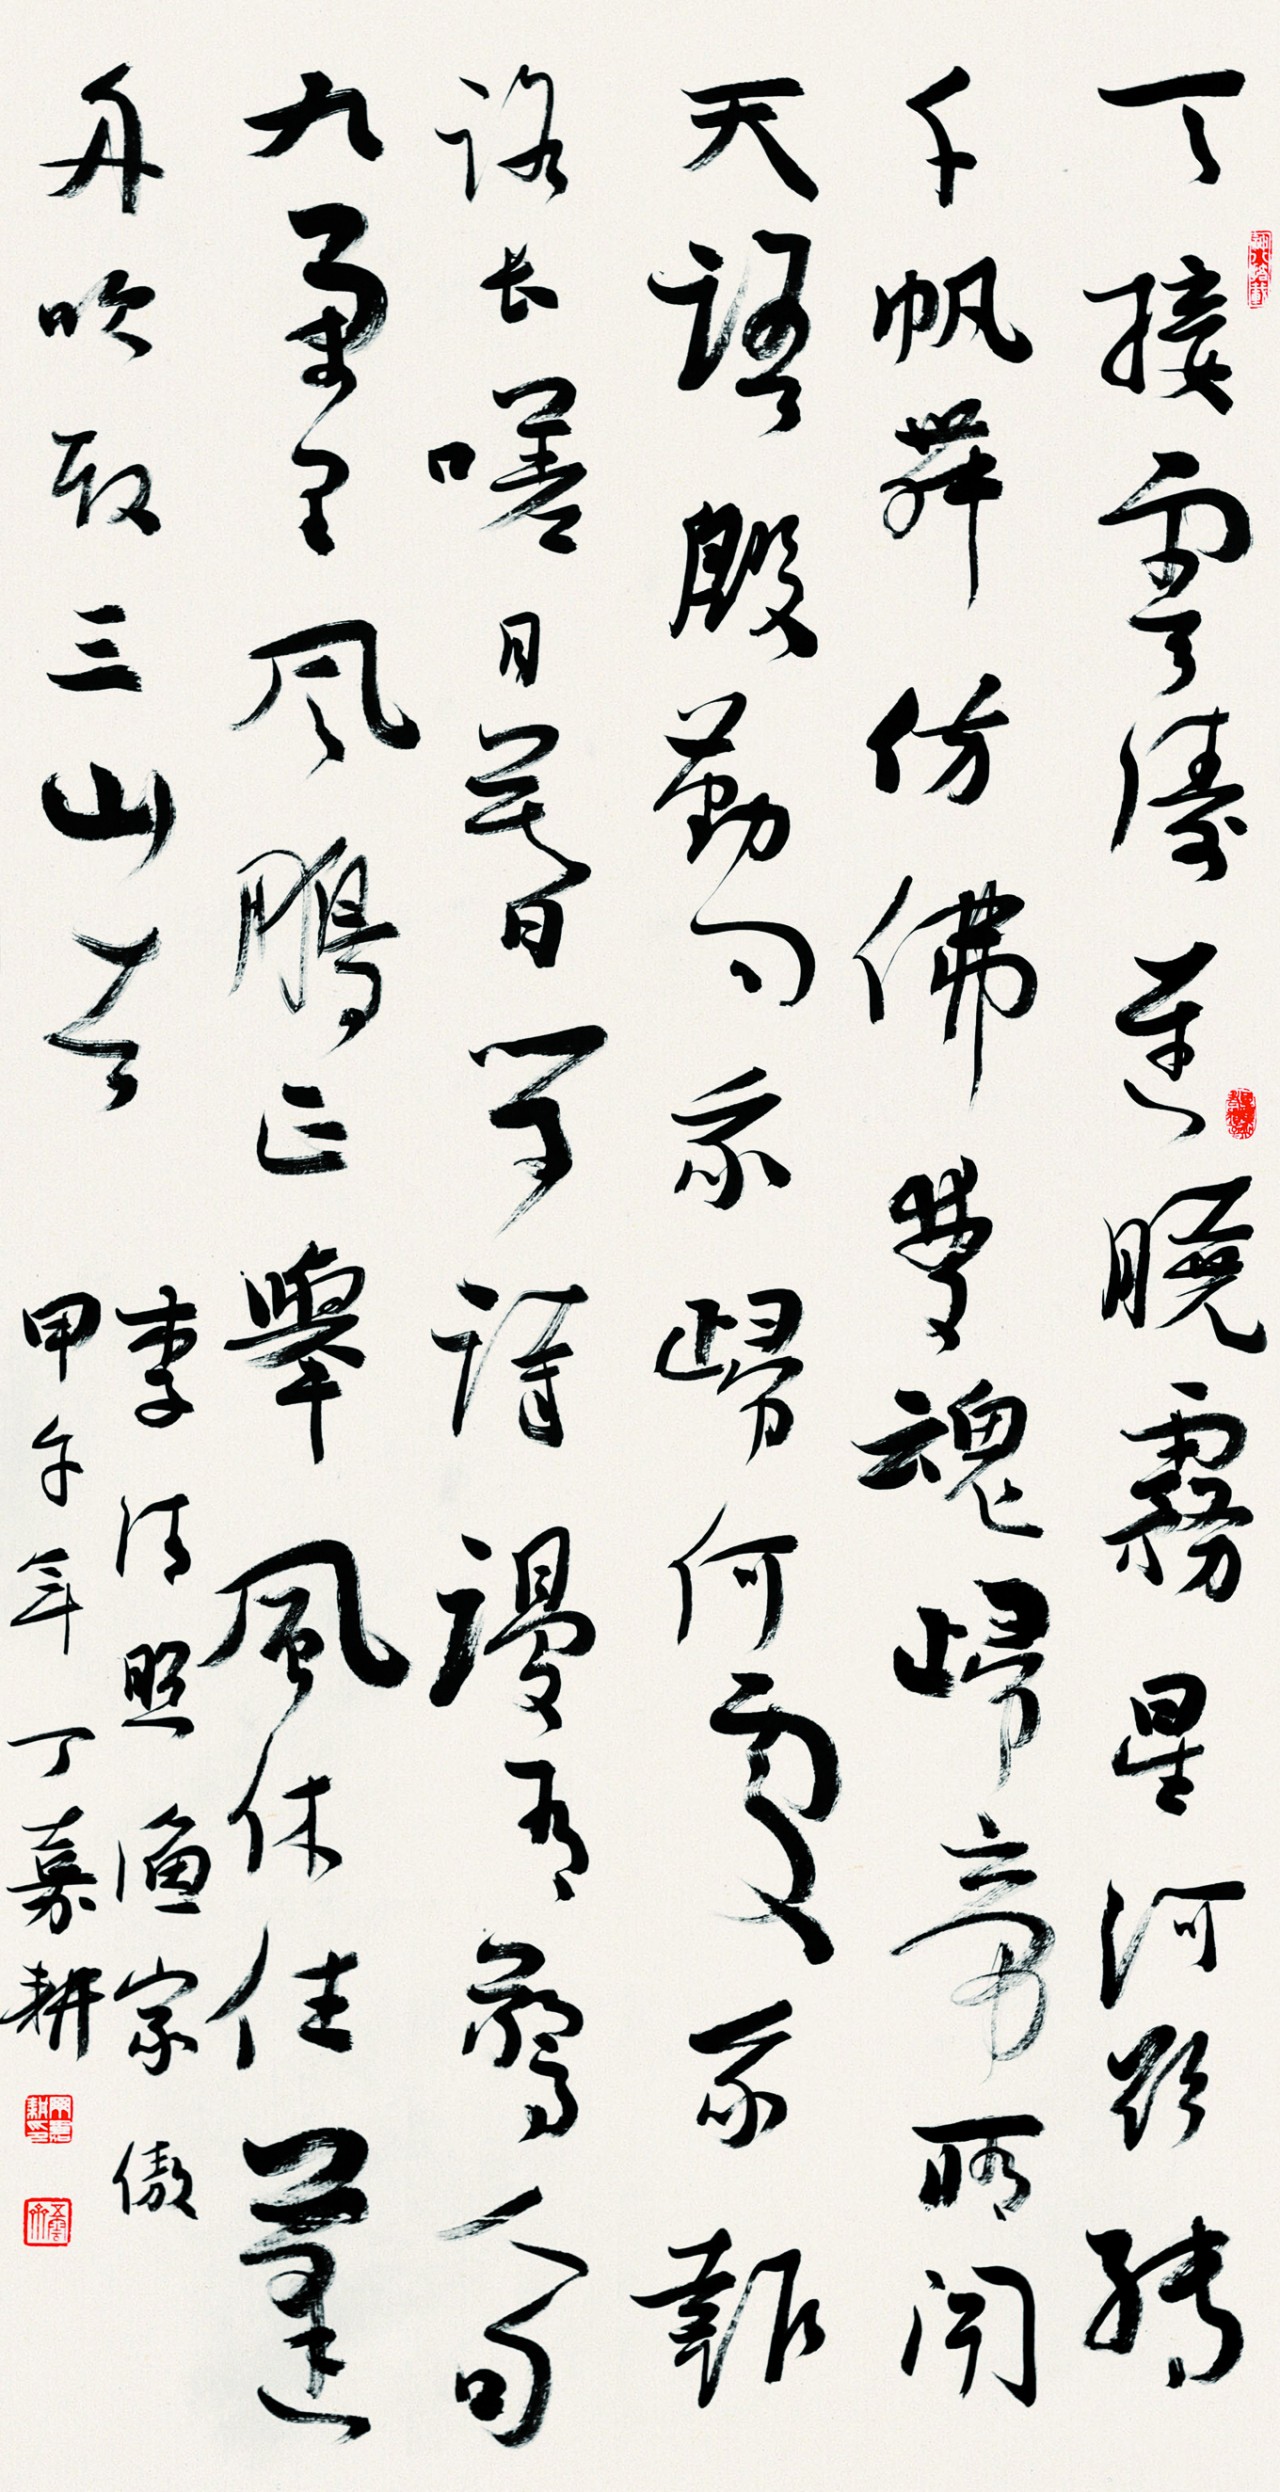 天接雲濤連曉霧星河欲轉
千帆舞仿佛夢魂歸帝所聞
天語殷勤问我歸何處我報
路长嗟日暮學詩謾有驚人句
九萬里风鵬正舉風休住蓬
舟吹取三山去
李清照渔家傲
甲午年丁嘉耕